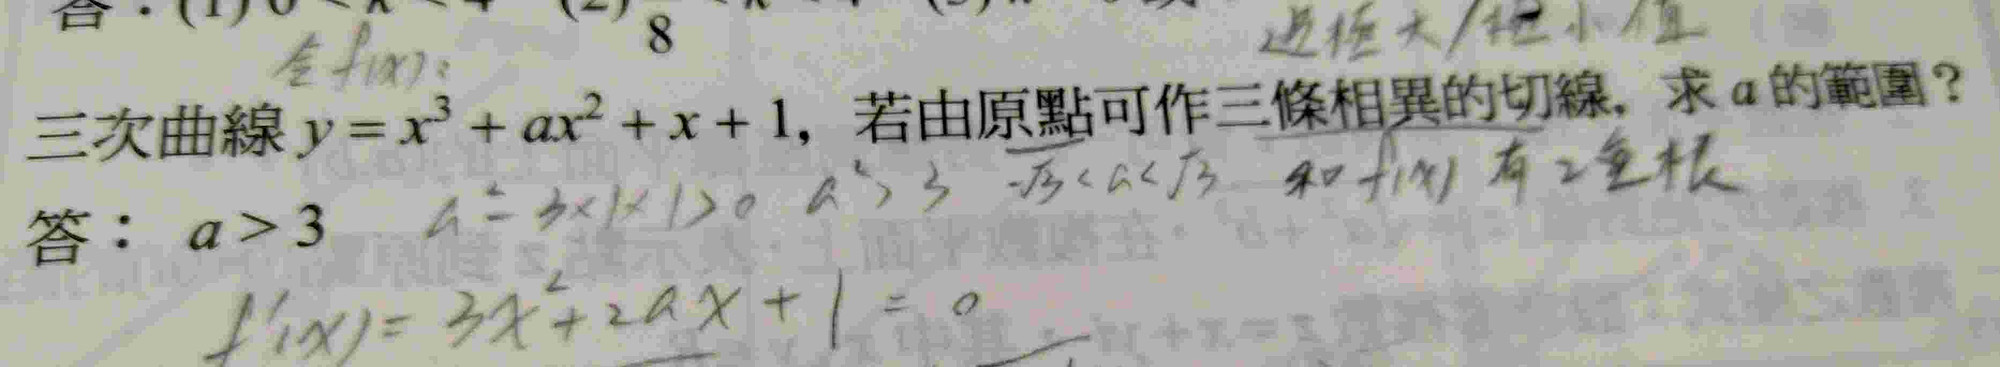 答：(1) 0 < k < 4 (2)
8
過極大/極小值
令 f(x):
三次曲線 y = x³ + ax² + x + 1, 若由原點可作三條相異的切線, 求 a 的範圍?
a² - 3×1×1>0 a² > 3 -√3 < a < √3 和 f(x) 有 2
答： a > 3
f'(x) = 3x² + 2ax + 1 = 0